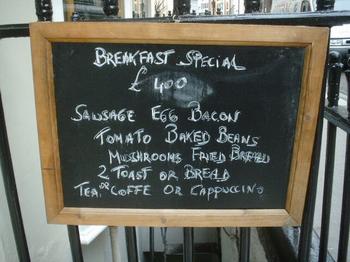 BREAKFAST SPECIAL
£ 4.00
SAUSAGE EGG BACON
TOMATO BAKED BEANS
MUSHROOMS FRIED BREAD
2 TOAST OR BREAD
TEA OR COFFE OR CAPPUCCINO